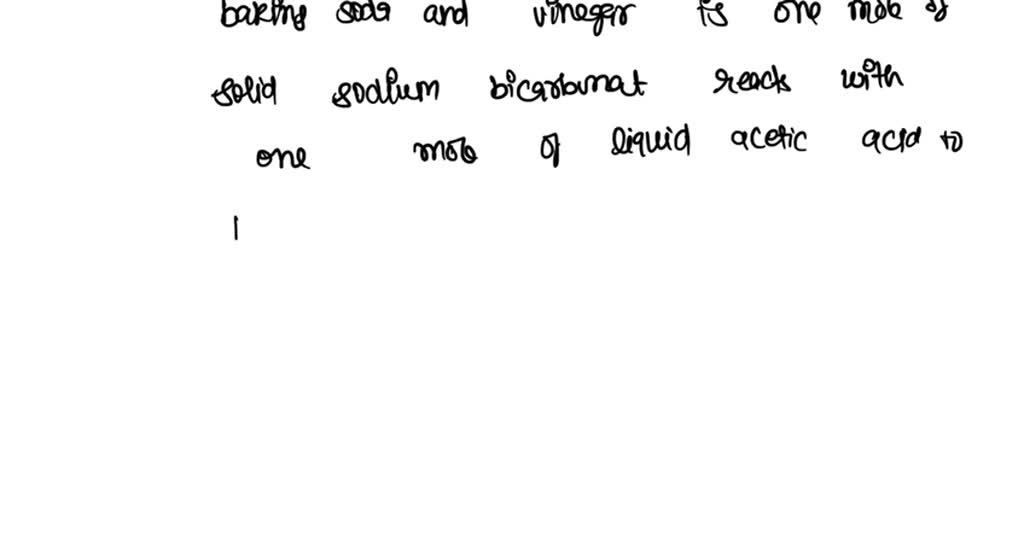 baking soda and vinegar is one mole of
solid sodium bicarbonat reacts with
one mole of liquid acetic acid to